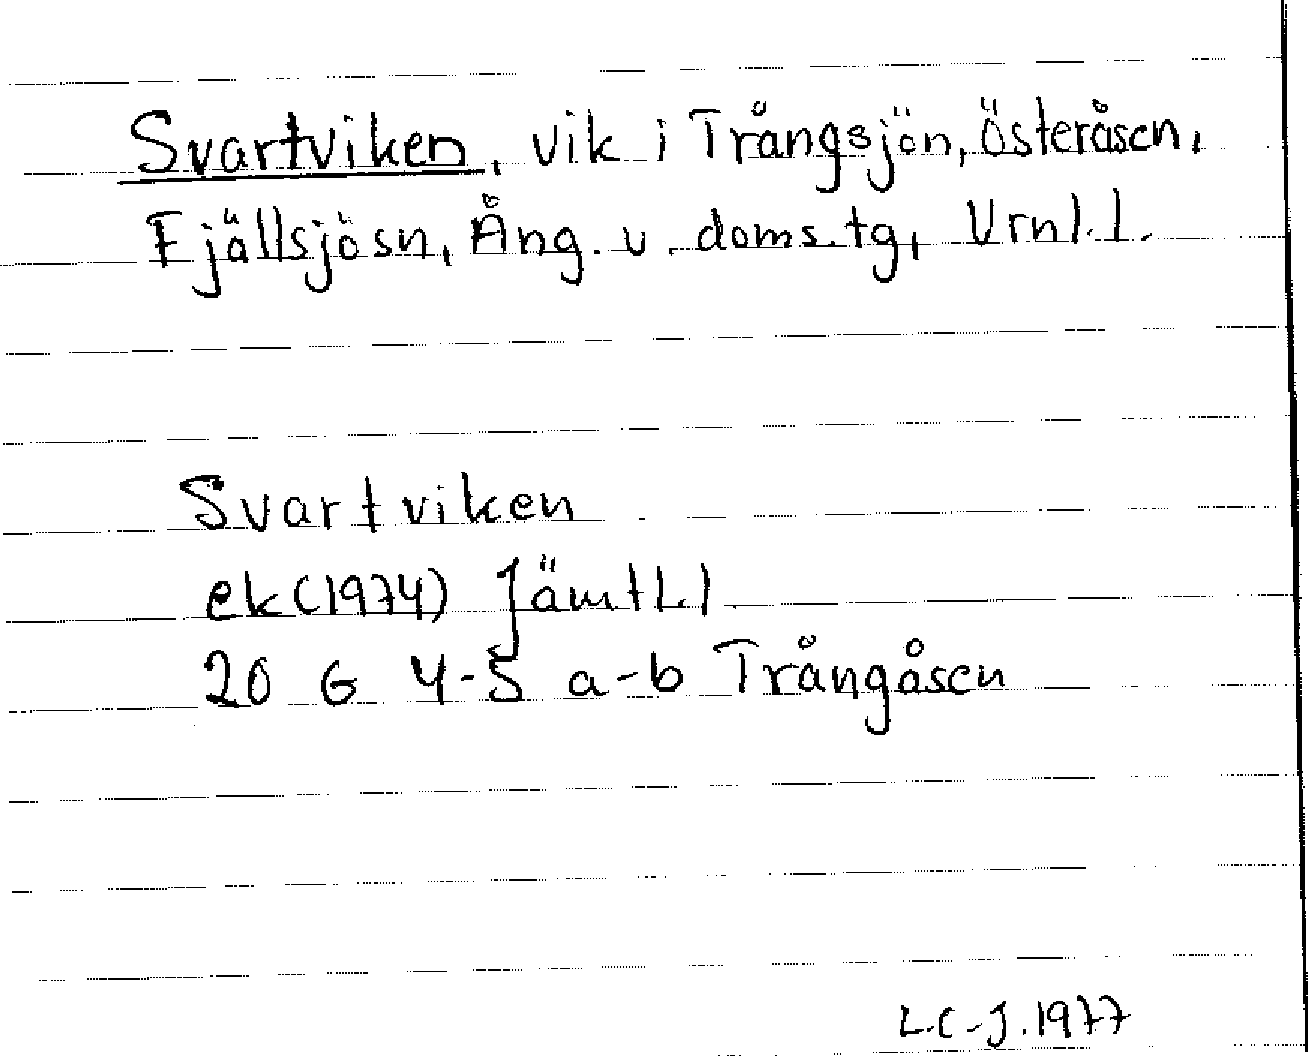 Svartviken, vik i Trångsjön, Österåsen,
Fjällsjösn, Ång. v. doms.tg, Vrnl.l.
Svartviken
ek(1974) JämtLl
20 G 4-5 a-b Trångåsen
L.C-J.1977